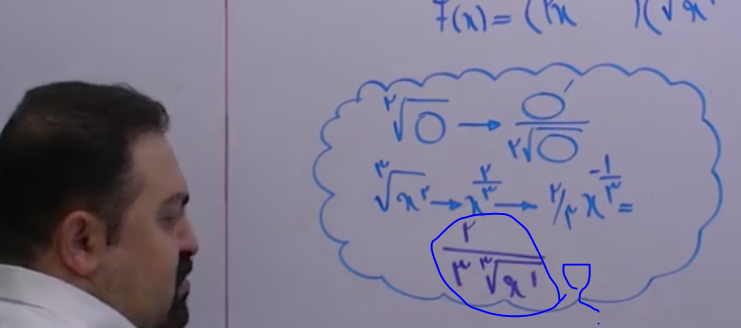 f(x) = (۳x )(√x
۲√O → O′ / ۲√O
۳√x۲ → x^۲/۳ → ۲/۳ x^-۱/۳ =
۲ / ۳ ۳√x۱